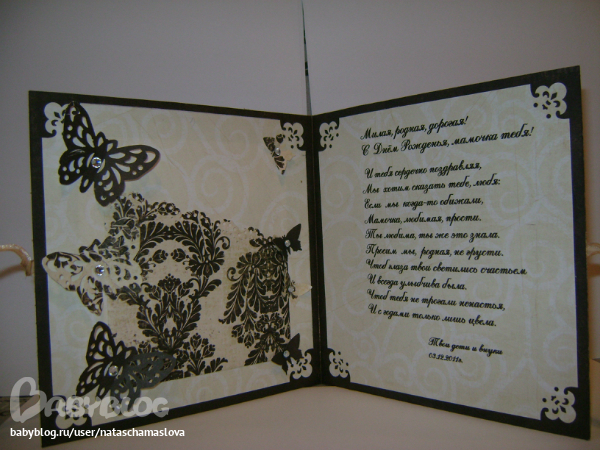 Милая, родная, дорогая!
С Днём Рожденья, мамочка тебя!
И тебя сердечно поздравляя,
Мы хотим сказать тебе, любя:
Если мы когда-то обижали,
Мамочка, любимая, прости.
Ты любима, ты же это знала.
Просим мы, родная, не грусти.
Чтоб глаза твои светились счастьем
И всегда улыбчива была.
Чтоб тебя не трогали ненастья,
И с годами только лишь цвела.
Твои дети и внуки
03.12.2011г.
BABYBLOG
babyblog.ru/user/nataschamaslova